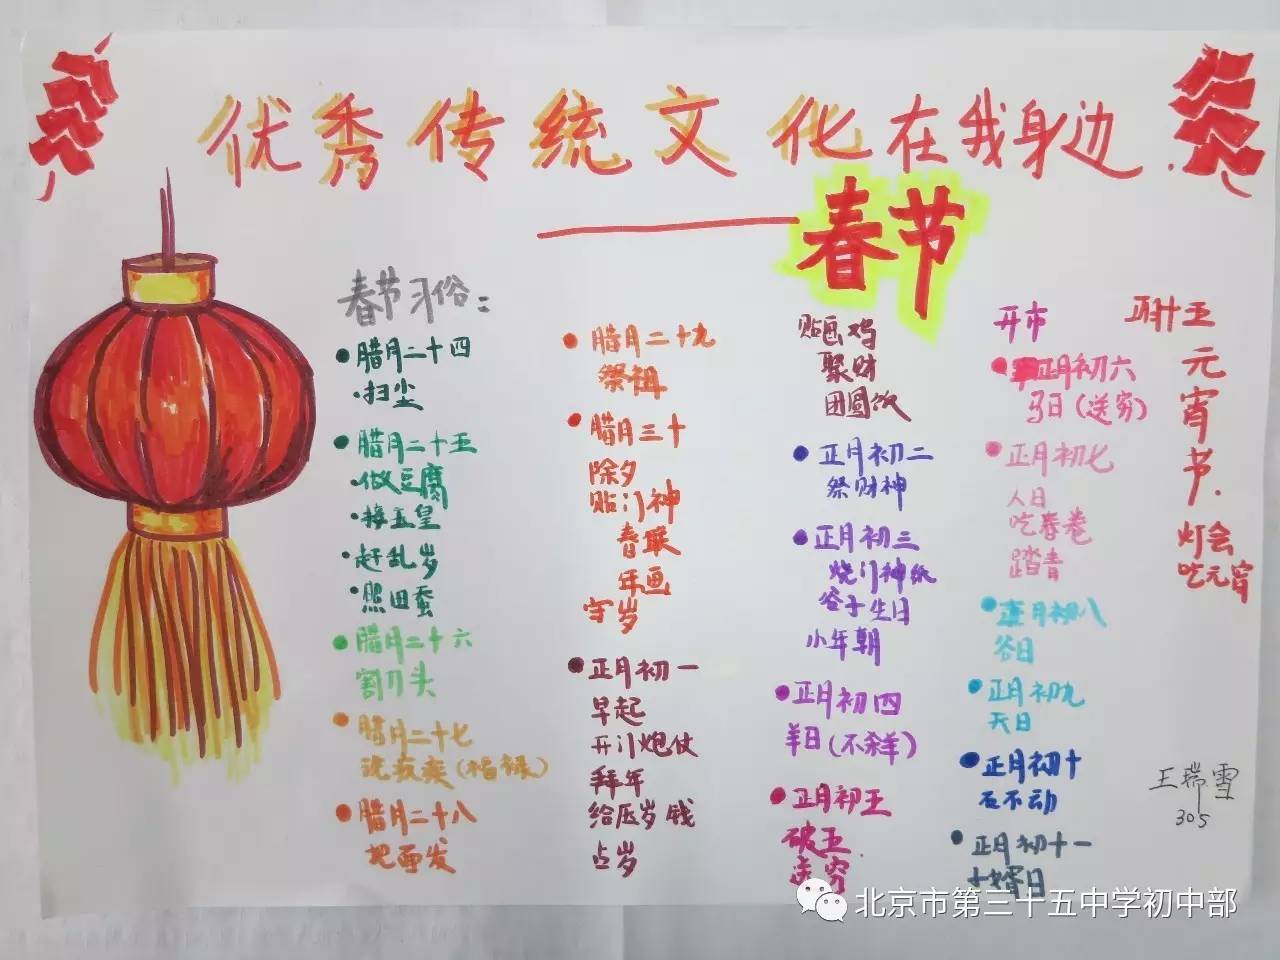 优秀传统文化在我身边
春节
春节习俗：
腊月二十四
扫尘
腊月二十五
做豆腐
接玉皇
赶乱岁
照田蚕
腊月二十六
割刀头
腊月二十七
洗疚疾(福禄)
腊月二十八
把面发
腊月二十九
祭祖
腊月三十
除夕
贴门神
春联
年画
守岁
正月初一
早起
开门炮仗
拜年
给压岁钱
占岁
贴画鸡
聚财
团圆饭
正月初二
祭财神
正月初三
烧门神纸
谷子生日
小年朝
正月初四
羊日(不杀羊)
正月初五
破五
送穷
开市
正月初六
马日(送穷)
正月初七
人日
吃春卷
踏青
正月初八
谷日
正月初九
天日
正月初十
石不动
正月初十一
子婿日
正月十五
元宵节.
灯会
吃元宵
王瑞雪
305
北京市第三十五中学初中部